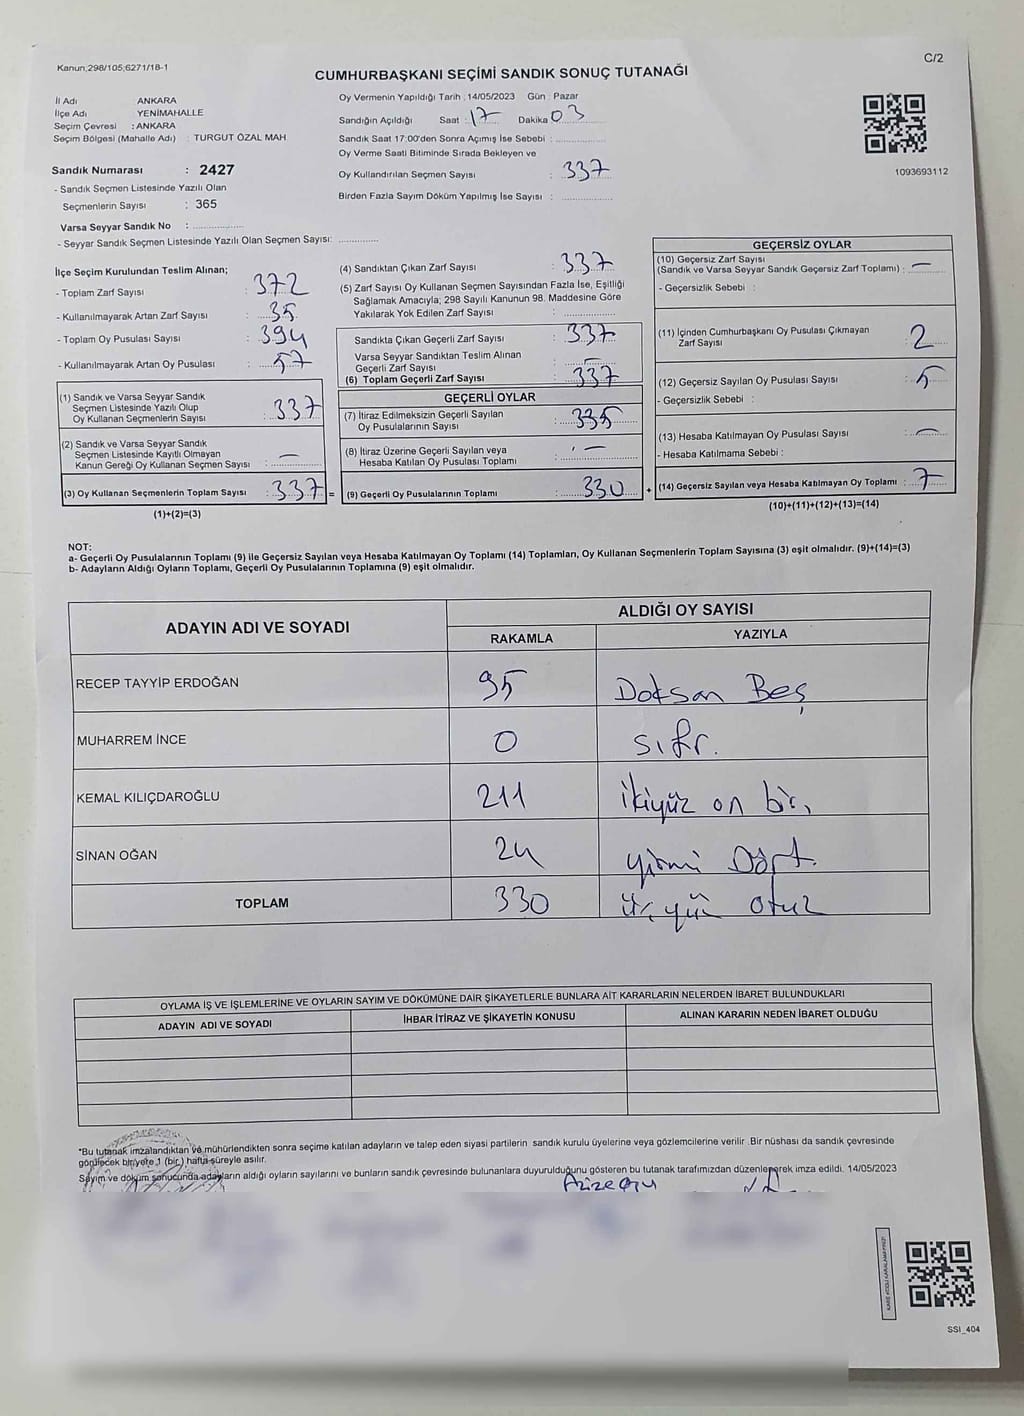 Kanun;298/105;6271/18-1
C/2
CUMHURBAŞKANI SEÇİMİ SANDIK SONUÇ TUTANAĞI
İl Adı ANKARA
İlçe Adı YENİMAHALLE
Seçim Çevresi : ANKARA
Seçim Bölgesi (Mahalle Adı) : TURGUT ÖZAL MAH.
Sandık Numarası : 2427
- Sandık Seçmen Listesinde Yazılı Olan
Seçmenlerin Sayısı : 365
Varsa Seyyar Sandık No :
- Seyyar Sandık Seçmen Listesinde Yazılı Olan Seçmen Sayısı:
Oy Vermenin Yapıldığı Tarih : 14/05/2023 Gün : Pazar
Sandığın Açıldığı Saat : 17 Dakika 03
Sandık Saat 17:00'den Sonra Açımış İse Sebebi :
Oy Verme Saati Bitiminde Sırada Bekleyen ve
Oy Kullandırılan Seçmen Sayısı : 337
Birden Fazla Sayım Döküm Yapılmış İse Sayısı :
1093693112
İlçe Seçim Kurulundan Teslim Alınan;
- Toplam Zarf Sayısı : 372
- Kullanılmayarak Artan Zarf Sayısı : 35
- Toplam Oy Pusulası Sayısı : 394
- Kullanılmayarak Artan Oy Pusulası : 57
(1) Sandık ve Varsa Seyyar Sandık
Seçmen Listesinde Yazılı Olup
Oy Kullanan Seçmenlerin Sayısı : 337
(2) Sandık ve Varsa Seyyar Sandık
Seçmen Listesinde Kayıtlı Olmayan
Kanun Gereği Oy Kullanan Seçmen Sayısı : —
(3) Oy Kullanan Seçmenlerin Toplam Sayısı : 337 =
(1)+(2)=(3)
(4) Sandıktan Çıkan Zarf Sayısı : 337
(5) Zarf Sayısı Oy Kullanan Seçmen Sayısından Fazla İse, Eşitliği
Sağlamak Amacıyla; 298 Sayılı Kanunun 98. Maddesine Göre
Yakılarak Yok Edilen Zarf Sayısı :
Sandıkta Çıkan Geçerli Zarf Sayısı : 337
Varsa Seyyar Sandıktan Teslim Alınan
Geçerli Zarf Sayısı : —
(6) Toplam Geçerli Zarf Sayısı : 337
GEÇERLİ OYLAR
(7) İtiraz Edilmeksizin Geçerli Sayılan
Oy Pusulalarının Sayısı : 335
(8) İtiraz Üzerine Geçerli Sayılan veya
Hesaba Katılan Oy Pusulası Toplamı : —
(9) Geçerli Oy Pusulalarının Toplamı : 330 +
GEÇERSİZ OYLAR
(10) Geçersiz Zarf Sayısı
(Sandık ve Varsa Seyyar Sandık Geçersiz Zarf Toplamı) : —
- Geçersizlik Sebebi :
(11) İçinden Cumhurbaşkanı Oy Pusulası Çıkmayan
Zarf Sayısı : 2
(12) Geçersiz Sayılan Oy Pusulası Sayısı : 5
- Geçersizlik Sebebi :
(13) Hesaba Katılmayan Oy Pusulası Sayısı : —
- Hesaba Katılmama Sebebi :
(14) Geçersiz Sayılan veya Hesaba Katılmayan Oy Toplamı : 7
(10)+(11)+(12)+(13)=(14)
NOT:
a- Geçerli Oy Pusulalarının Toplamı (9) ile Geçersiz Sayılan veya Hesaba Katılmayan Oy Toplamı (14) Toplamları, Oy Kullanan Seçmenlerin Toplam Sayısına (3) eşit olmalıdır. (9)+(14)=(3)
b- Adayların Aldığı Oyların Toplamı, Geçerli Oy Pusulalarının Toplamına (9) eşit olmalıdır.
ADAYIN ADI VE SOYADI ALDIĞI OY SAYISI
RAKAMLA YAZIYLA
RECEP TAYYİP ERDOĞAN 95 Doksan Beş
MUHARREM İNCE 0 sıfır.
KEMAL KILIÇDAROĞLU 211 ikiyüz on bir,
SİNAN OĞAN 24 yirmi Dört.
TOPLAM 330 üçyüz otuz
OYLAMA İŞ VE İŞLEMLERİNE VE OYLARIN SAYIM VE DÖKÜMÜNE DAİR ŞİKAYETLERLE BUNLARA AİT KARARLARIN NELERDEN İBARET BULUNDUKLARI
ADAYIN ADI VE SOYADI İHBAR İTİRAZ VE ŞİKAYETİN KONUSU ALINAN KARARIN NEDEN İBARET OLDUĞU
*Bu tutanak imzalandıktan ve mühürlendikten sonra seçime katılan adayların ve talep eden siyasi partilerin sandık kurulu üyelerine veya gözlemcilerine verilir. Bir nüshası da sandık çevresinde
görülecek bir yere 1 (bir) hafta süreyle asılır.
Sayım ve döküm sonucunda adayların aldığı oyların sayılarını ve bunların sandık çevresinde bulunanlara duyurulduğunu gösteren bu tutanak tarafımızdan düzenlenerek imza edildi. 14/05/2023
SSI_404